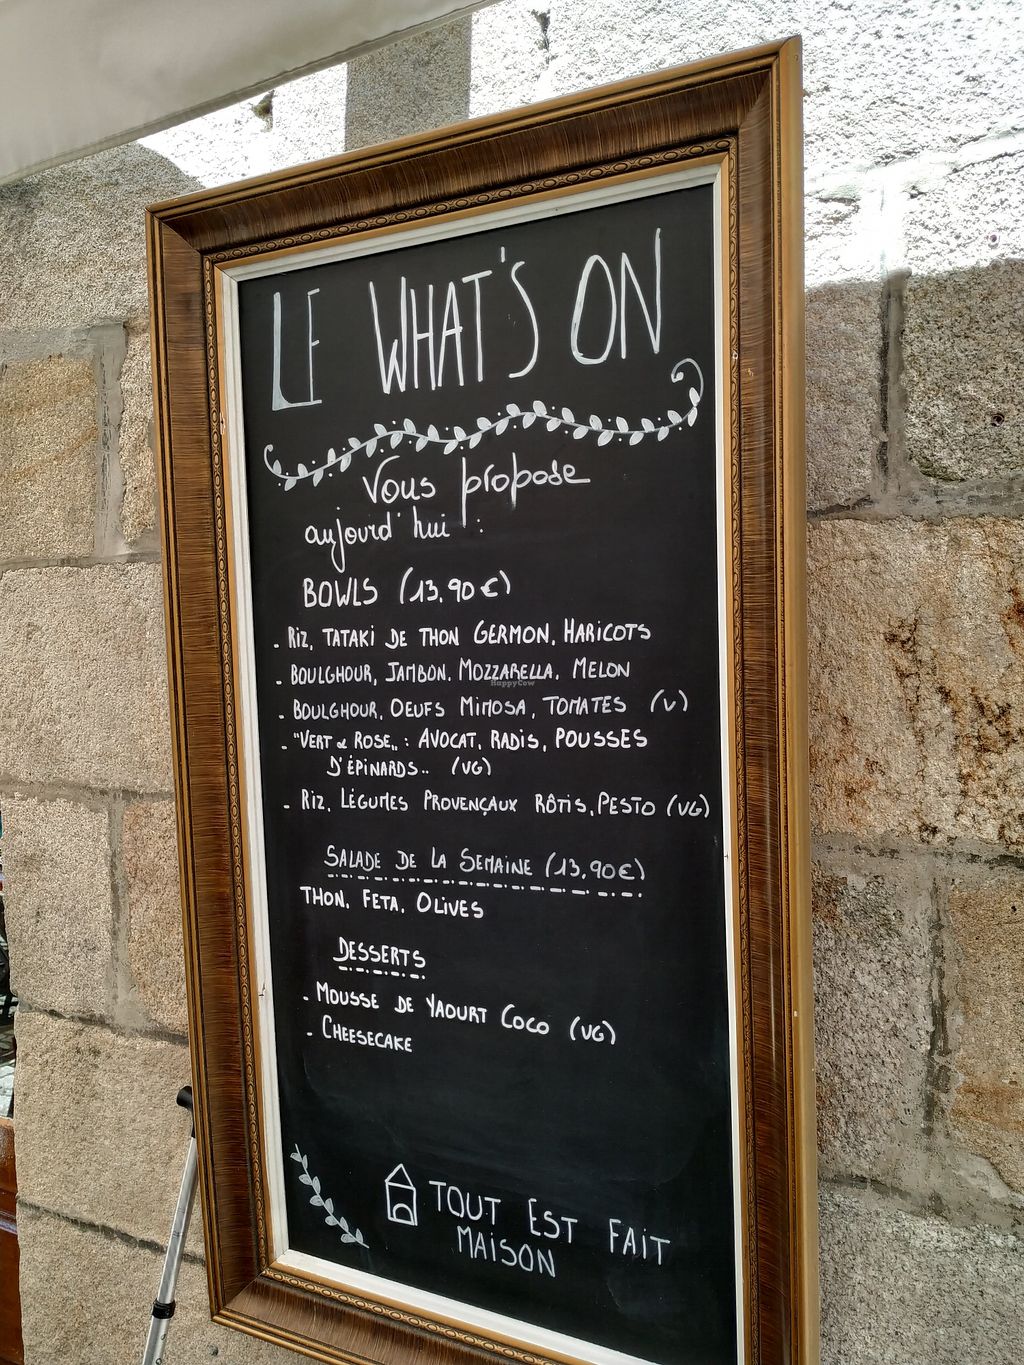 LE WHAT'S ON
Vous propose
aujourd'hui :
BOWLS (13,90€)
- RIZ, TATAKI DE THON GERMON, HARICOTS
- BOULGHOUR, JAMBON, MOZZARELLA, MELON
HappyCow
- BOULGHOUR, OEUFS MIMOSA, TOMATES (V)
- "VERT & ROSE" : AVOCAT, RADIS, POUSSES
D'ÉPINARDS.. (VG)
- RIZ, LÉGUMES PROVENÇAUX RÔTIS, PESTO (VG)
SALADE DE LA SEMAINE (13,90€)
THON, FETA, OLIVES
DESSERTS
- MOUSSE DE YAOURT COCO (VG)
- CHEESECAKE
TOUT EST FAIT
MAISON